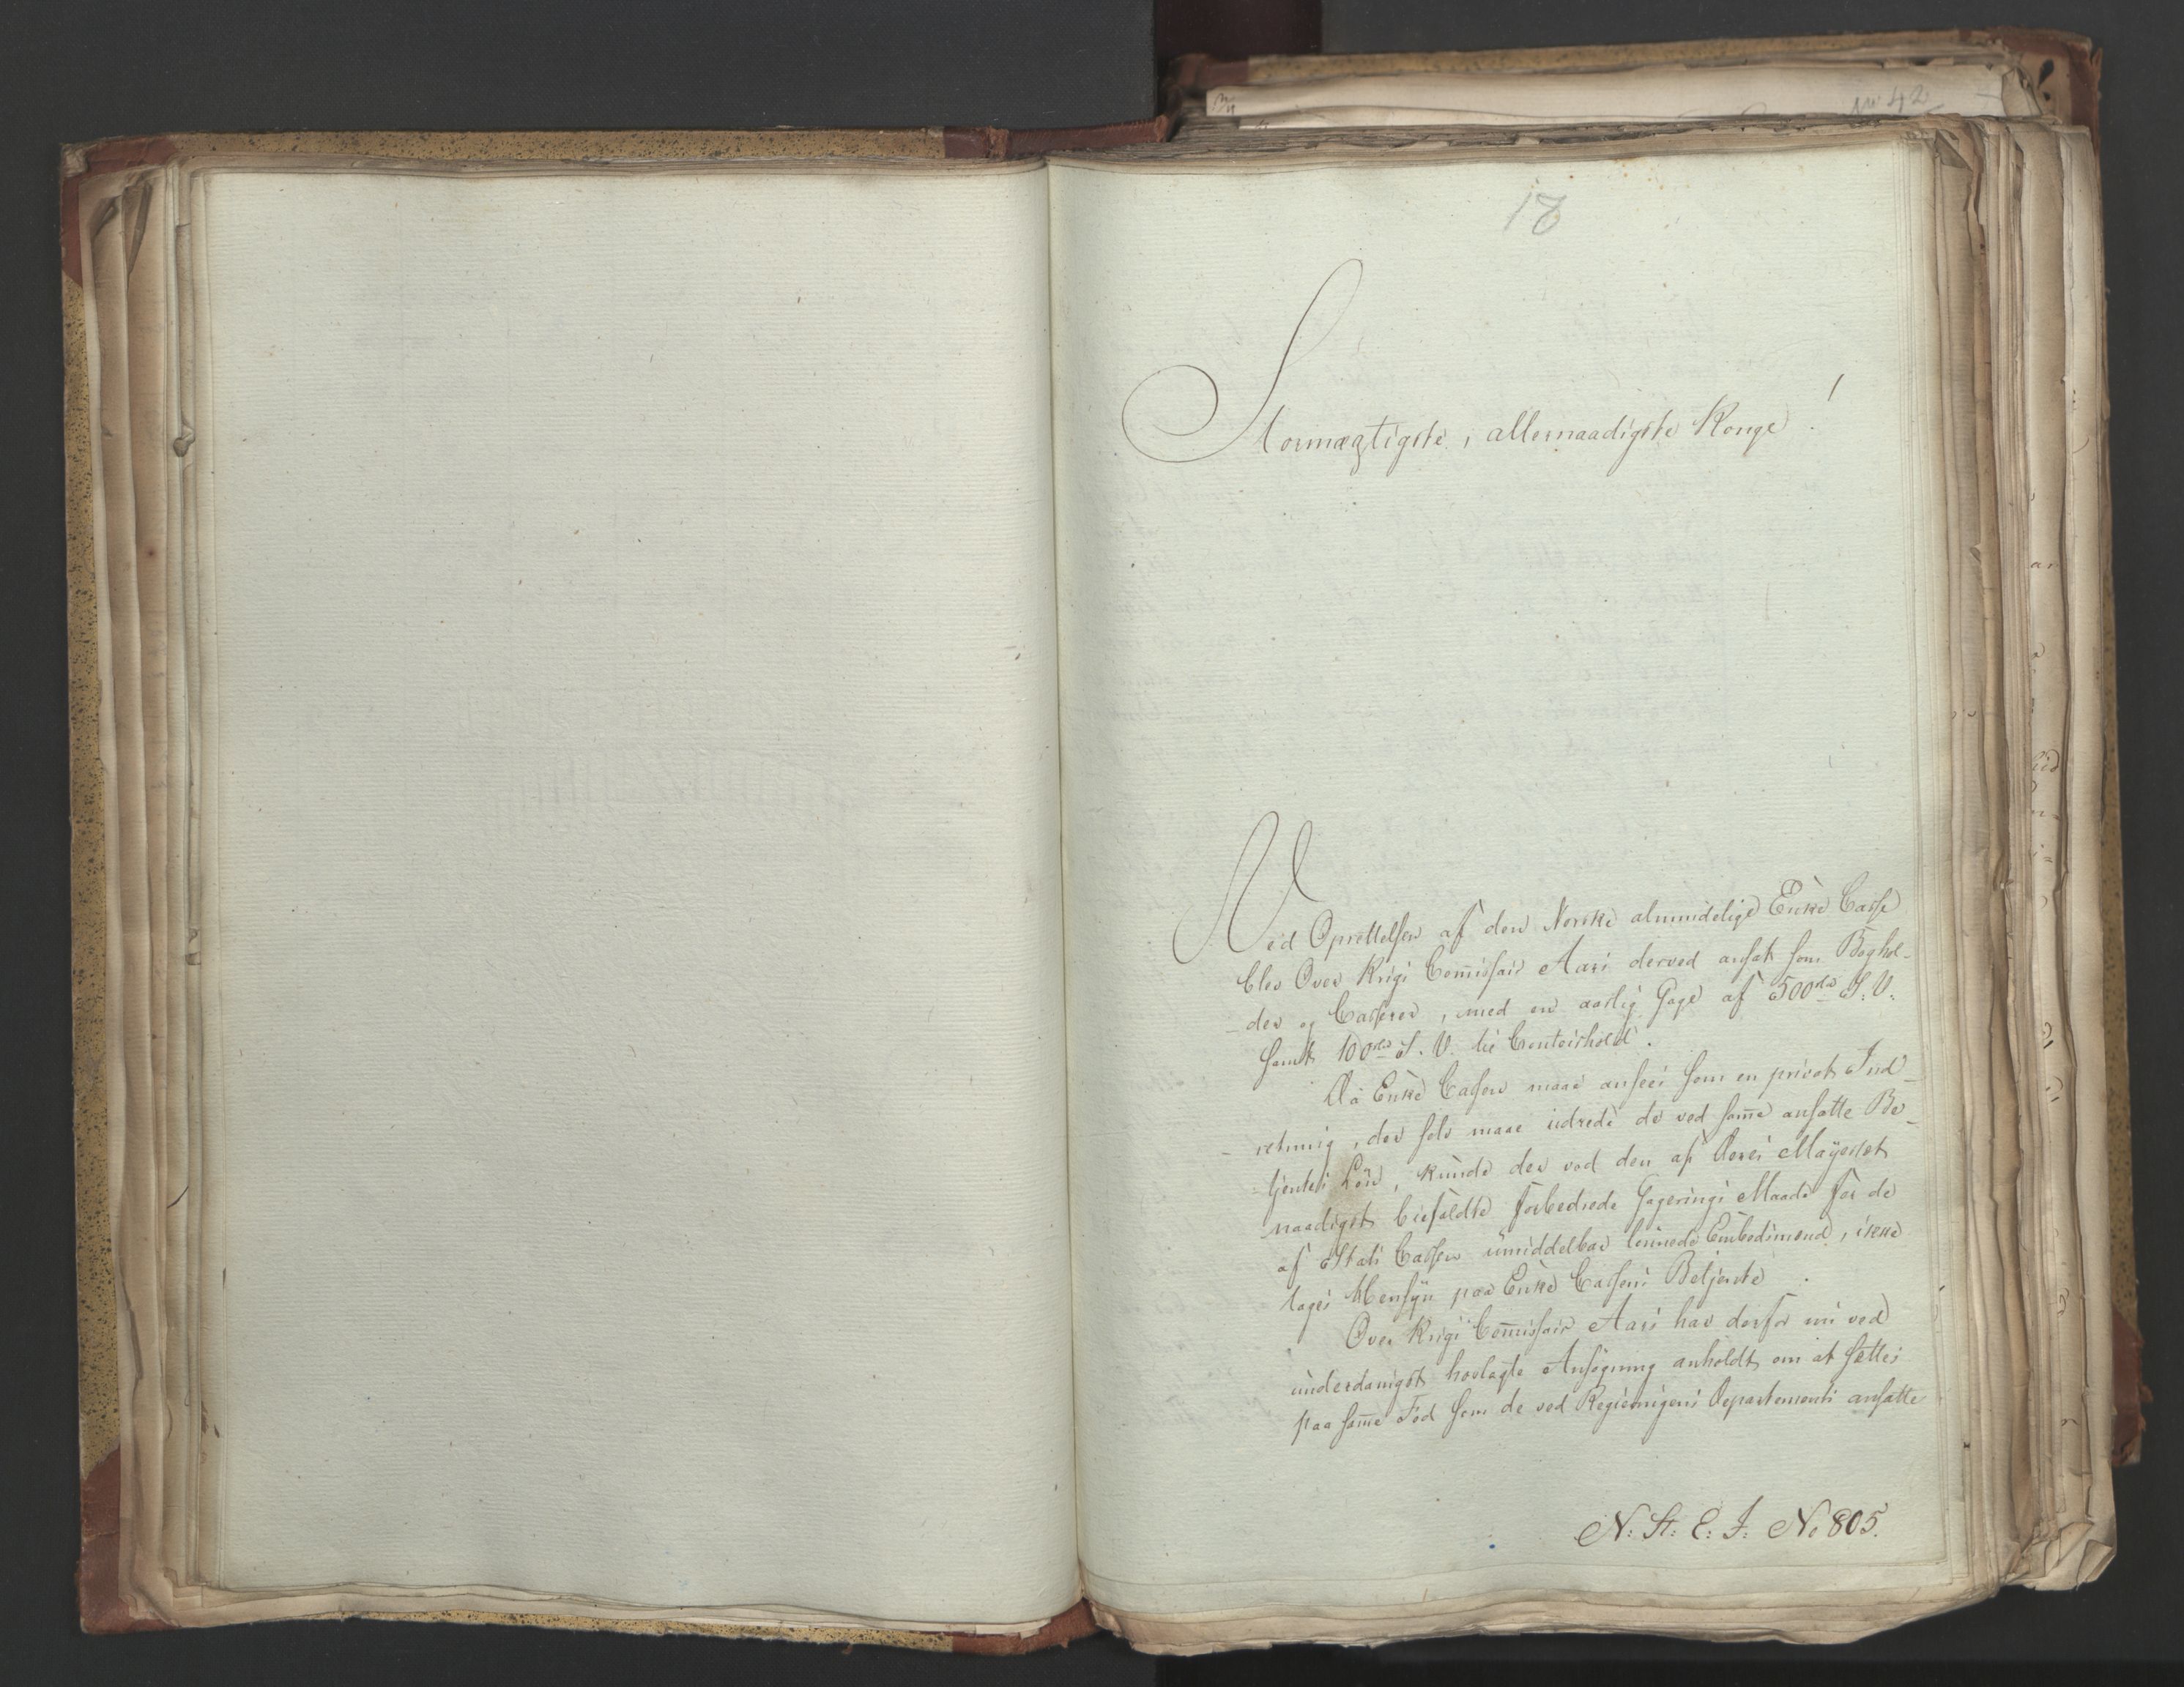 No 42
18
Stormægtigste, allernaadigste Konge!
Ved Oprettelsen af den Norske almindelige Enke Casse
blev Over Krigs Com̅issair Aars derved ansat som Boghol-
-der og Casserer, med en aarlig Gage af 500 rdr S. V.
samt 100 rdr S. V. til Contoirhold.
Da Enke Cassen maae ansees som en privat Ind-
-retning, der selv maae udrede de ved sam̅e ansatte Be-
-tjentes Løn, kunde der ved den af Deres Mayestet
naadigst bifaldte forbedrede Gagerings Maade for de
af Stats Cassen umiddelbar lønnede Embedsmend, ikke
tages Hensyn paa Enke Cassens Betjente.
Over Krigs Com̅issair Aars har derfor nu ved
underdanigst hoslagte Ansøgning anholdt om at sættes
paa sam̅e Fod som de ved Regieringens Departements ansatte
N: St: C: J: No 805.